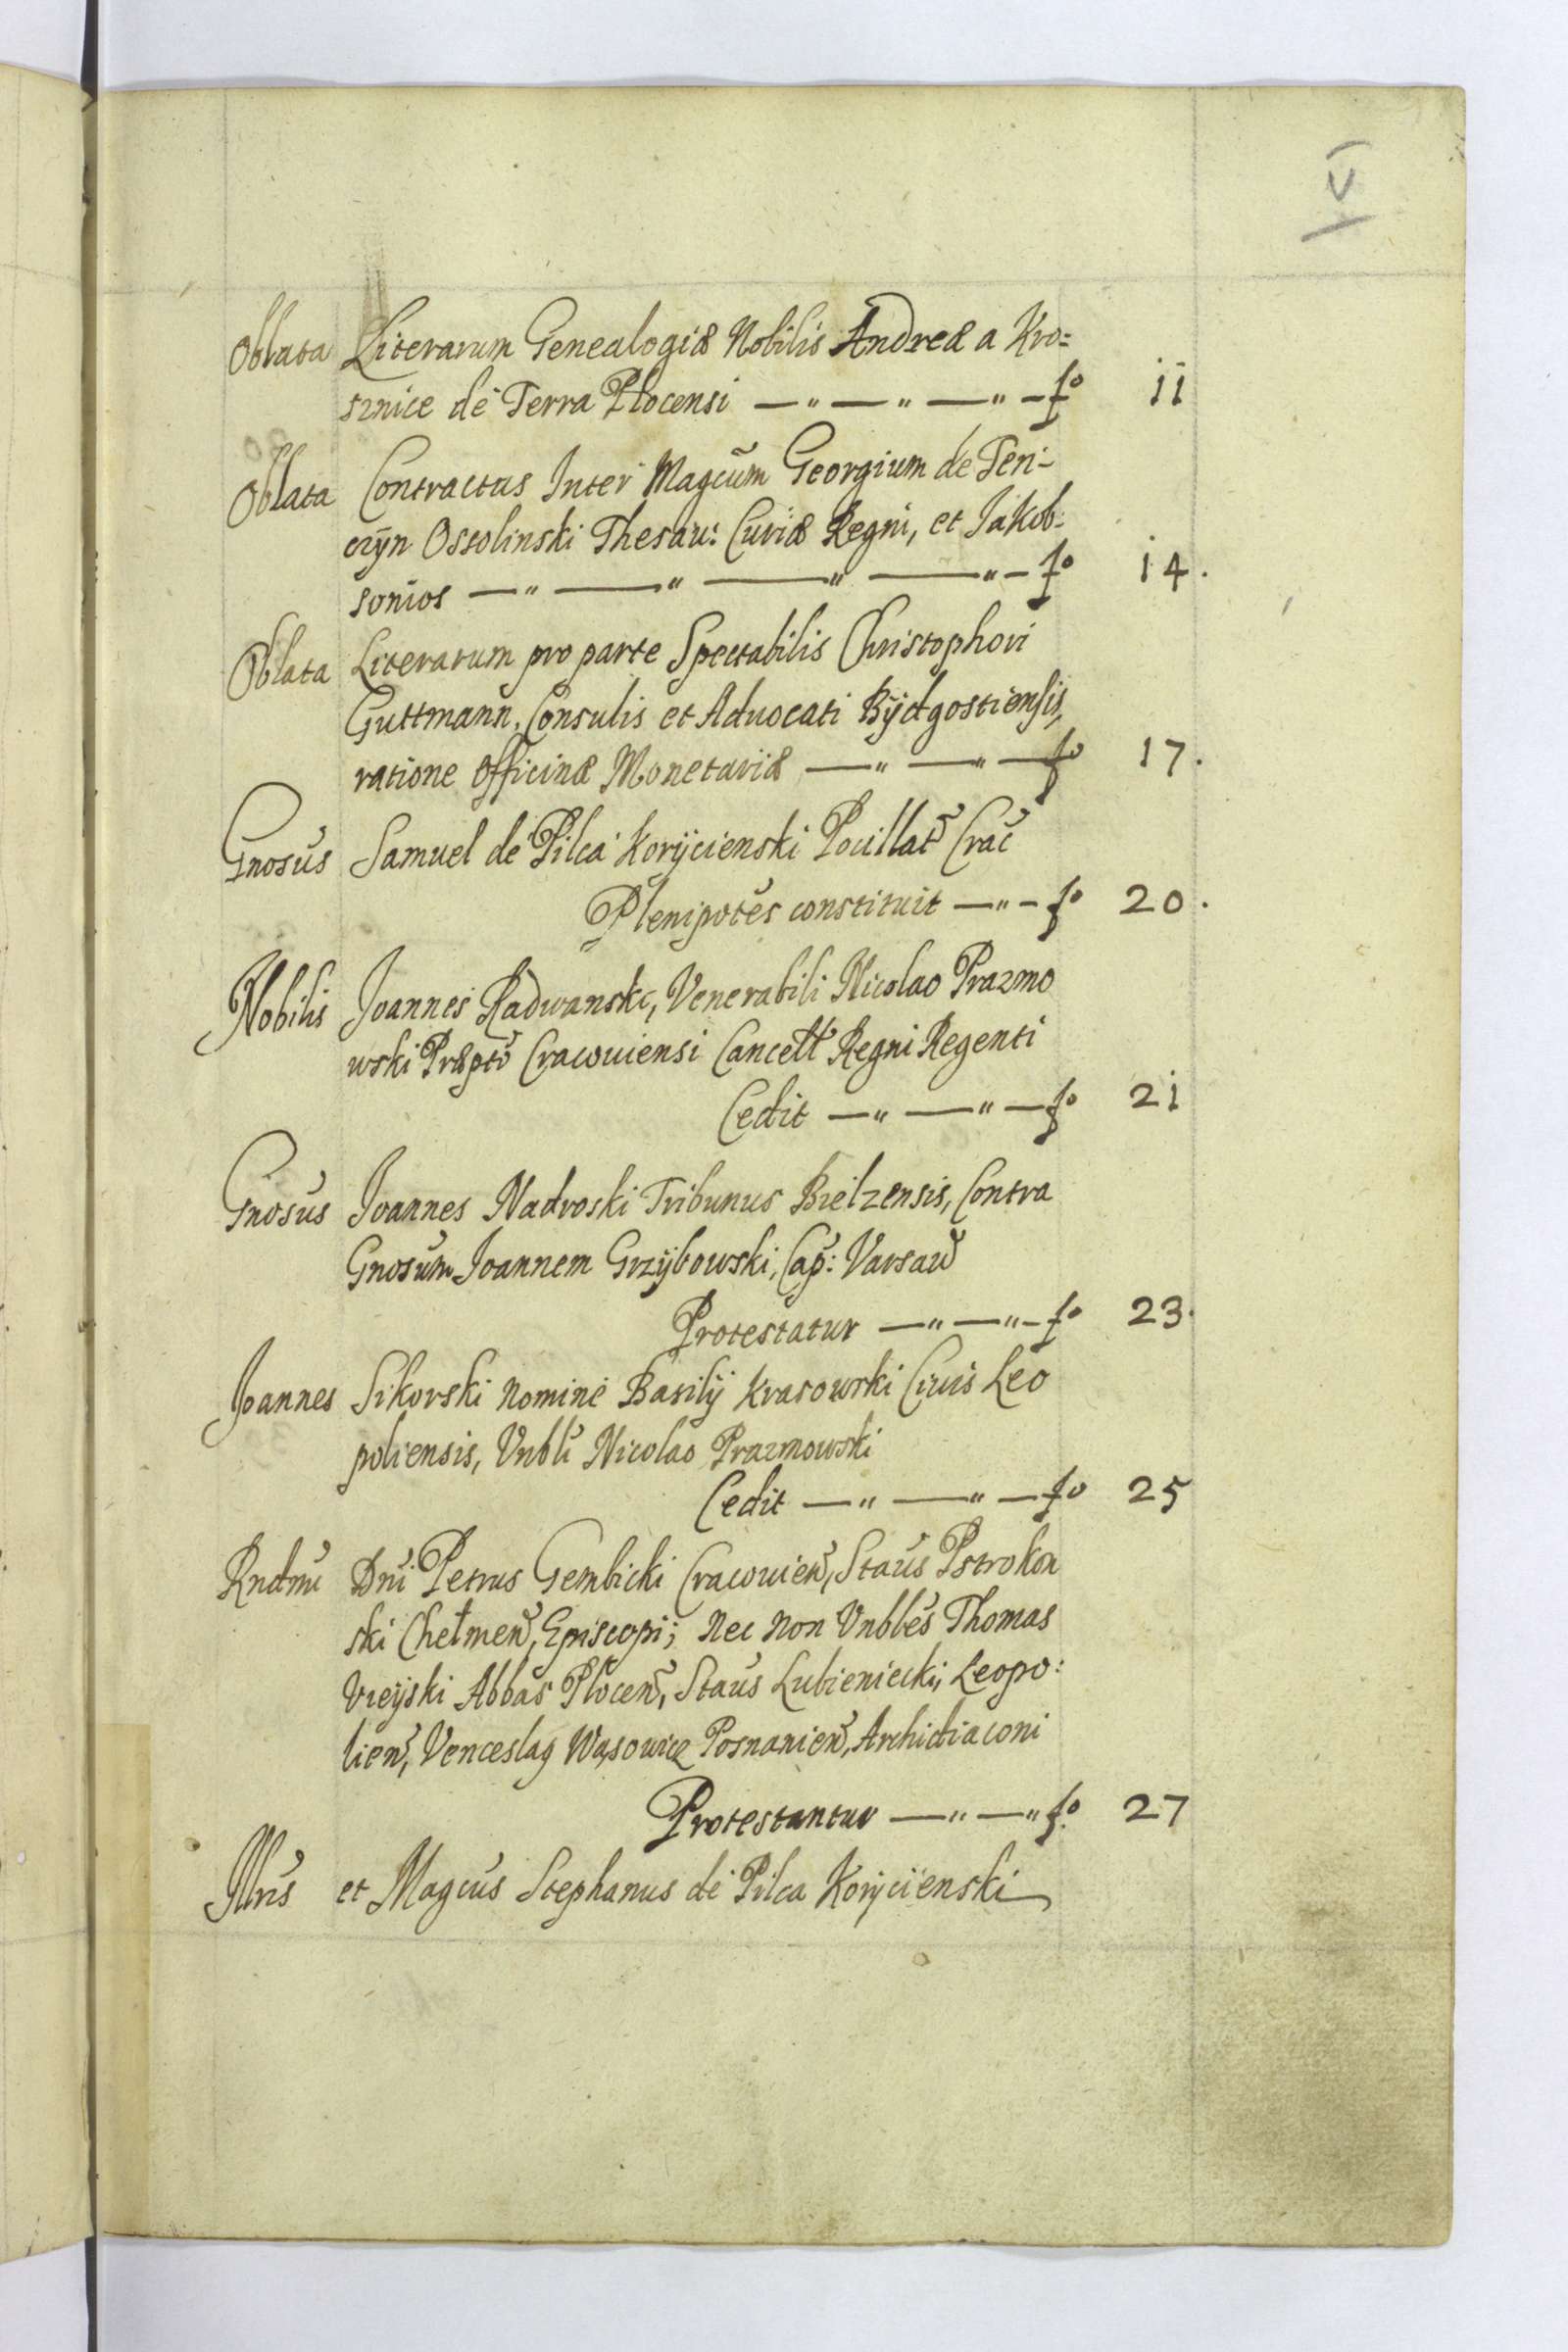 Oblata Literarum Genealogiæ Nobilis Andreæ a Kro=
sznice de Terra Plocensi —"—"—"— fo 11
Oblata Contractus Inter Magcum Georgium de Ten-
czÿn Ossolinski Thesau: Curiæ Regni, et Jakob:
sonios —"—"—"—"— fo 14.
Oblata Literarum pro parte Spectabilis Christophori
Guttmann, Consulis et Aduocati Bÿdgostiensis,
ratione Officinæ Monetariæ —"—"— fo 17.
Gnosus Samuel de Pilca Korÿcienski Pocillat Crac
Plenipotes constituit —"— fo 20.
Nobilis Joannes Radwanski, Venerabili Nicolao Prazmo
wski Præpto Cracouiensi Cancell Regni Regenti
Cedit —"—"— fo 21
Gnosus Joannes Nadroski Tribunus Bielzensis, Contra
Gnosum Joannem Grzÿbowski, Cap: Varsau
Protestatur —"—"— fo 23.
Joannes Sikorski nomine Basilÿ Krasowski Ciuis Leo
poliensis, Vnbli Nicolao Prazmowski
Cedit —"—"— fo 25
Rndmi Dni Petrus Gembicki Cracouien, Staus Pstrokon
ski Chełmen, Episcopi; nec non Vnbles Thomas
Vieÿski Abbas Plocen, Staus Lubieniecki, Leopo:
lien, Venceslaq Wąsowicz Posnanien, Archidiaconi
Protestantur —"—" fo. 27
Illris et Magcus Stephanus de Pilca Korÿcienski